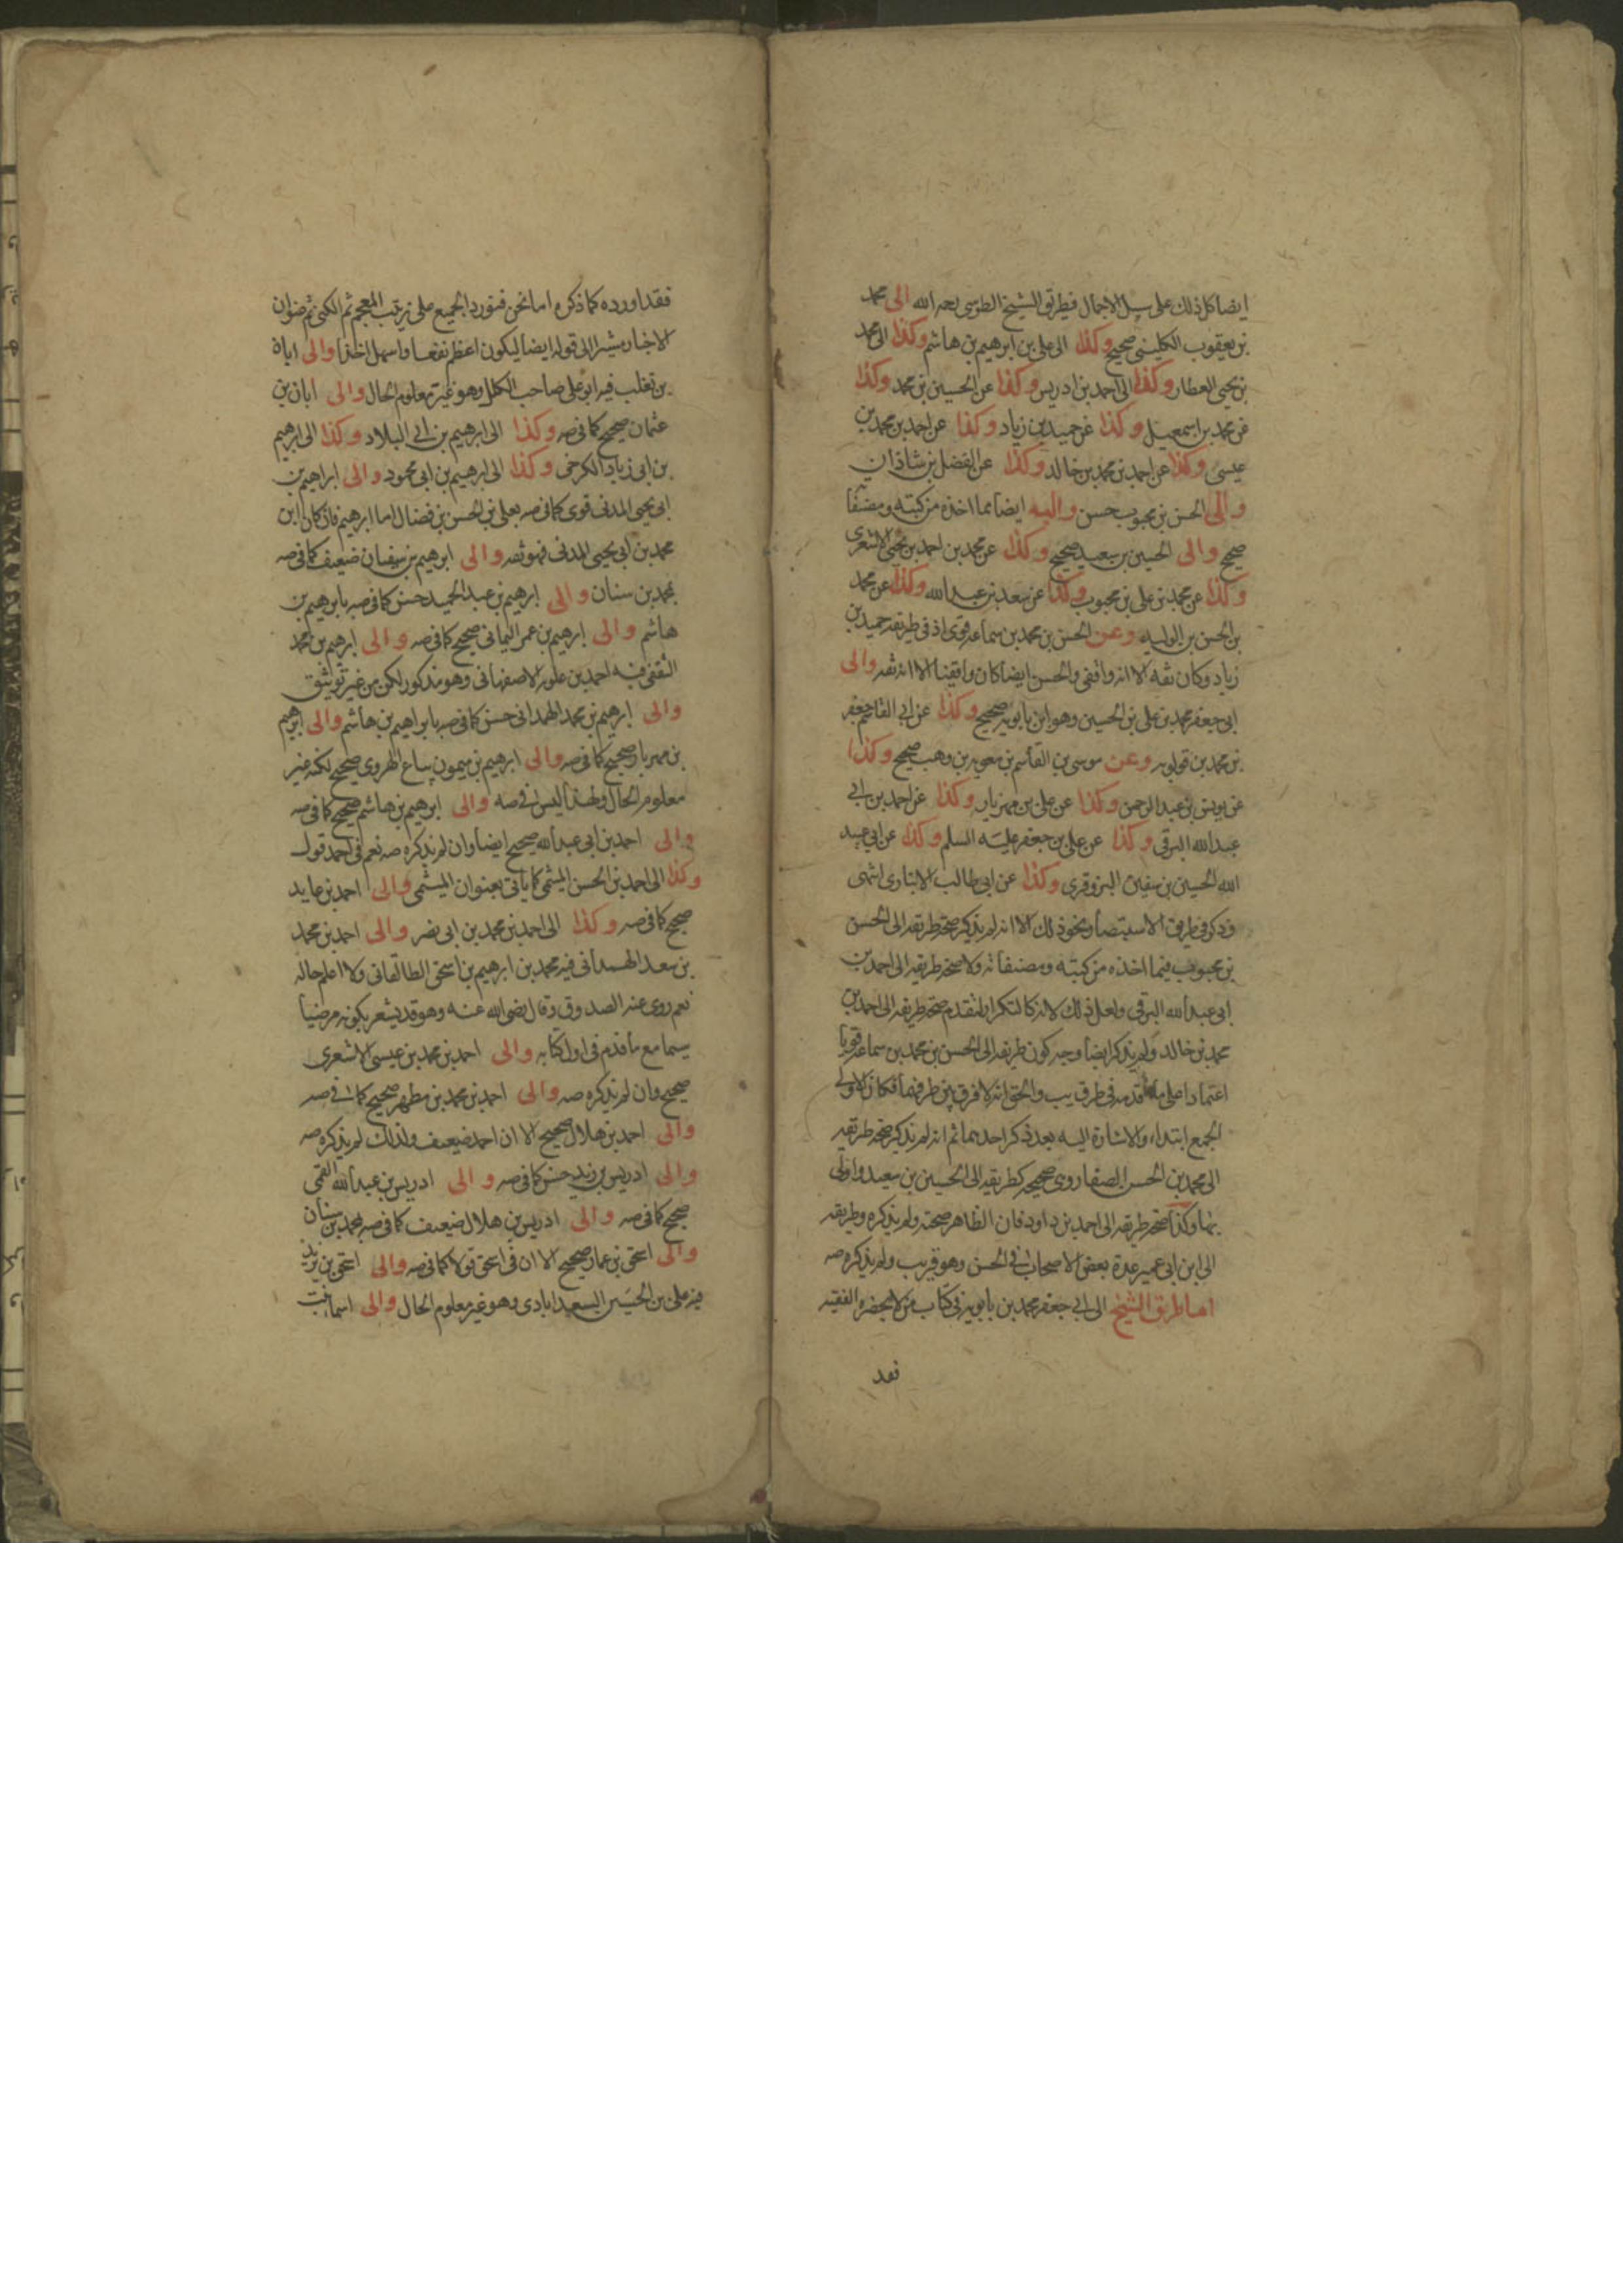 ايضا كل ذلك على سبيل الاجمال فطريق الشيخ الطوسى رحمه الله الى محمد
بن يعقوب الكلينى صحيح وكذا الى على بن ابرهيم بن هاشم وكذا الى محمد
بن يحيى العطار وكذا الى احمد بن ادريس وكذا عن الحسين بن محمد وكذا
عن محمد بن اسمعيل وكذا عن حميد بن زياد وكذا عن احمد بن محمد بن
عيسى وكذا عن احمد بن محمد بن خالد وكذا عن الفضل بن شاذان
والى الحسن بن محبوب حسن واليه ايضا مما اخذه من كتبه ومصنفا
صحيح والى الحسين بن سعيد صحيح وكذا عن محمد بن احمد بن يحيى الاشعرى
وكذا عن محمد بن على بن محبوب وكذا عن سعد بن عبد الله وكذا عن محمد
بن الحسن بن الوليد وعن الحسن بن محمد بن سماعه قوى اذ فى طريقه حميد بن
زياد وكان ثقه الا انه واقفى والحسن ايضا كان واقفيا الا انه ثقه والى
ابى جعفر محمد بن على بن الحسين وهو ابن بابويه صحيح وكذا عن ابى القاسم جعفر
بن محمد بن قولويه وعن موسى بن القاسم بن معويه بن وهب صحيح وكذا
عن يونس بن عبد الرحمن وكذا عن على بن مهزيار وكذا عن احمد بن ابى
عبد الله البرقى وكذا عن على بن جعفر عليه السلم وكذا عن ابى عبد
الله الحسين بن سفين البزوفرى وكذا عن ابى طالب الانبارى انتهى
وذكر فى طرق الاستبصار نحو ذلك الا انه لم يذكر صحة طريقه الى الحسن
بن محبوب فيما اخذه من كتبه ومصنفاته ولا صحة طريقه الى احمد بن
ابى عبد الله البرقى ولعل ذلك لانه كالتكرار لتقدم صحة طريقه الى احمد بن
محمد بن خالد ولم يذكر ايضا وجه كون طريقه الى الحسن بن محمد بن سماعه قويا
اعتمادا على ما قدمه فى طرق يب والحق انه لا فرق بين طرفيهما فكان الاولى
الجمع ابتداء والاشارة اليه بعد ذكر احدهما ثم انه لم يذكر صحة طريقه
الى محمد بن الحسن الصفار وهى صحيحه كطريقه الى الحسين بن سعيد واولى
بها وكذا صحة طريقه الى احمد بن داود فان الظاهر صحته ولم يذكره وطريقه
الى ابن ابى عمير عدة بعض الاصحاب فى الحسن وهو قريب ولم يذكره صه
اما طريق الشيخ الى ابى جعفر محمد بن بابويه فى كتاب من لا يحضره الفقيه
فقد
فقد اورده كما ذكره اما نحن فنورد الجميع على ترتيب المعجم ثم الكنى ثم عنوان
الاخبار مشيرا الى قوله ايضا ليكون اعظم نفعا واسهل اخذا والى ابان
بن تغلب فيه ابو على صاحب الكلل وهو غير معلوم الحال والى ابان بن
عثمان صحيح كما فى صه وكذا الى ابرهيم بن ابى البلاد وكذا الى ابرهيم
بن ابى زياد الكرخى وكذا الى ابرهيم بن ابى محمود والى ابراهيم بن
ابى يحيى المدنى قوى كما فى صه بعلى بن الحسن بن فضال اما ابرهيم فان كان ابن
محمد بن ابى يحيى المدنى فموثقه والى ابرهيم بن سفيان ضعيف كما فى صه
بمحمد بن سنان والى ابرهيم بن عبد الحميد حسن كما فى صه بابرهيم بن
هاشم والى ابرهيم بن عمر اليمانى صحيح كما فى صه والى ابرهيم بن محمد
الثقفى فيه احمد بن علويه الاصفهانى وهو مذكور لكن من غير توثيق
والى ابرهيم بن محمد الهمدانى حسن كما فى صه بابراهيم بن هاشم والى ابرهيم
بن مهزيار صحيح كما فى صه والى ابرهيم بن ميمون بياع الهروى صحيح لكنه غير
معلوم الحال ولهذا ليس فى صه والى ابرهيم بن هاشم صحيح كما فى صه
والى احمد بن ابى عبد الله صحيح ايضا وان لم يذكره صه نعم فى احمد قول
وكذا الى احمد بن الحسن الميثمى كما ياتى بعنوان الميثمى والى احمد بن عايد
صحيح كما فى صه وكذا الى احمد بن محمد بن ابى نصر والى احمد بن محمد
بن سعد الهمدانى فيه محمد بن ابرهيم بن اسحق الطالقانى ولا اعلم حاله
نعم روى عنه الصدوق وقال رضى الله عنه وهو قد يشعر بكونه مرضيا
سيما مع ما قدم فى اول كتابه والى احمد بن محمد بن عيسى الاشعرى
صحيح وان لم يذكره صه والى احمد بن محمد بن مطهر صحيح كما فى صه
والى احمد بن هلال صحيح الا ان احمد ضعيف ولذلك لم يذكره صه
والى ادريس بن زيد حسن كما فى صه والى ادريس بن عبد الله القمى
صحيح كما فى صه والى ادريس بن هلال ضعيف كما فى صه بمحمد بن سنان
والى اسحق بن عمار صحيح الا ان فى اسحق قولا كما فى صه والى اسحق بن يزيد
فيه على بن الحسين السعدابادى وهو غير معلوم الحال والى اسما بنت